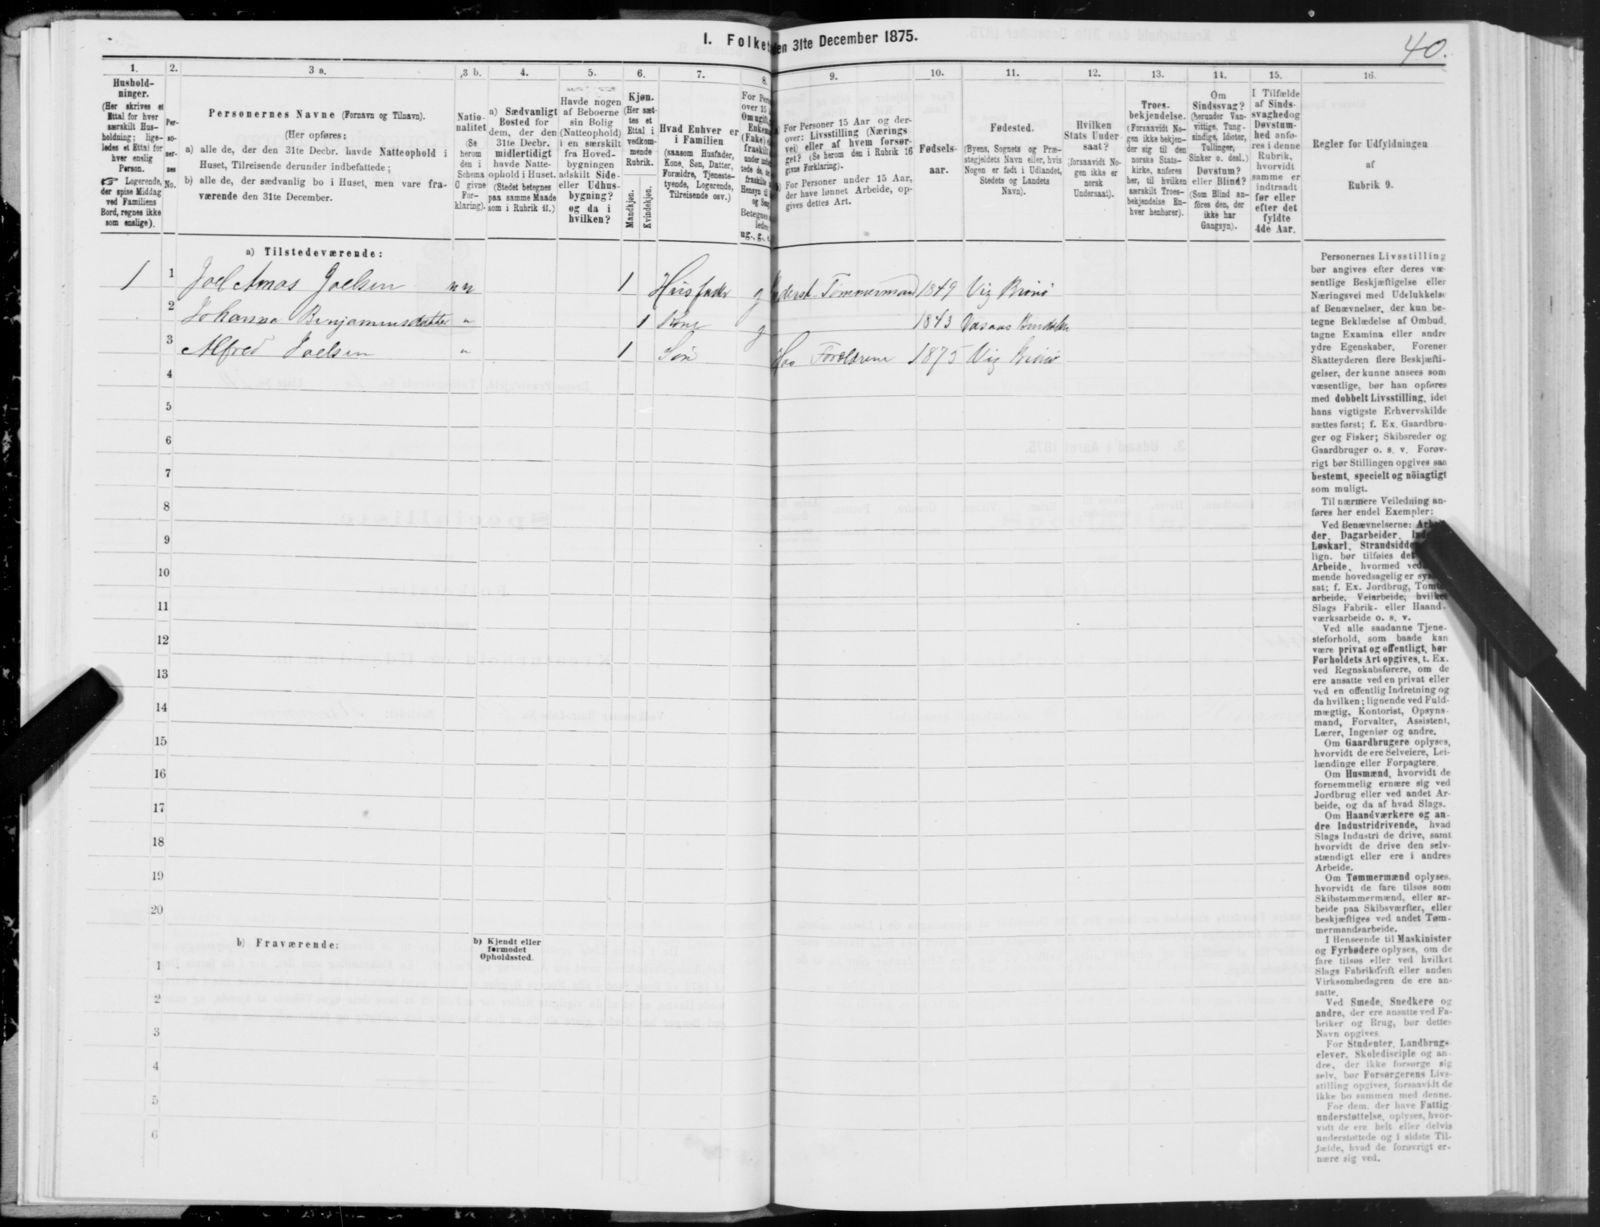 40.
I. Folket
en 31te December 1875.
1.
Hushold-
ninger.
(Her skrives et
Ettal for hver
særskilt Hus-
holdning; lige-
ledes et Ettal for
hver enslig
Person.
Logerende,
der spise Middag
ved Familiens
Bord, regnes ikke
som enslige).
2.
Per-
so-
ner-
nes
No.
3 a.
Personernes Navne (Fornavn og Tilnavn).
(Her opføres:
a) alle de, der den 31te Decbr. havde Natteophold i
Huset, Tilreisende derunder indbefattede;
b) alle de, der sædvanlig bo i Huset, men vare fra-
værende den 31te December.
3 b.
Natio-
nalitet
(Se
herom
den i
Schema
0 givne
For-
klaring).
4.
a) Sædvanligt
Bosted for
dem, der den
31te Decbr.
midlertidigt
havde Natte-
ophold i Huset.
(Stedet betegnes
paa samme Maade
som i Rubrik 11.)
5.
Havde nogen
af Beboerne
sin Bolig
(Natteophold)
i en særskilt
fra Hoved-
bygningen
adskilt Side-
eller Udhus-
bygning?
og da i
hvilken?
6.
Kjøn.
(Her sæt-
tes et
Ettal i
vedkom-
mende
Rubrik.
Mandkjøn.
Kvindekjøn.
7.
Hvad Enhver er
i Familien
(saasom Husfader,
Kone, Søn, Datter,
Forældre, Tjeneste-
tyende, Logerende,
Tilreisende osv.)
8.
For Pers
over 15
Om ugift,
Enkem
(Fake)
fraskilt
9.
For Personer 15 Aar og der-
over: Livsstilling (Nærings
vei) eller af hvem forsør-
get? (Se herom den i Rubrik 16
givne Forklaring).
For Personer under 15 Aar,
der have lønnet Arbeide, op-
gives dettes Art.
10.
Fødsels-
aar.
11.
Fødested.
(Byens, Sognets og Præ-
stegjeldets Navn eller, hvis
Nogen er født i Udlandet,
Stedets og Landets
Navn).
12.
Hvilken
Stats Under
saat?
(forsaavidt No-
gen ikke er
norsk
Undersaat).
13.
Troes-
bekjendelse.
(Forsaavidt No-
gen ikke bekjen-
der sig til den
norske Stats-
kirke, anføres
her, til hvilken
særskilt Troes-
bekjendelse En-
hver henhører).
14.
Om
Sindssvag?
(herunder Van-
vittige, Tung-
sindige, Idioter,
Tullinger,
Sinker o. desl.)
Døvstum?
eller Blind?
(Som Blind an-
føres den, der
ikke har
Gangsyn).
15.
I Tilfælde
af Sinds-
svaghed og
Døvstum-
hed anfø-
res i denne
Rubrik,
hvorvidt
samme er
indtraadt
før eller
efter det
fyldte
4de Aar.
16.
Regler for Udfyldningen
af
Rubrik 9.
a) Tilstedeværende:
1 1 Joel Amos Joelsen nn 1 Husfader g Tømmermand 1849 Vig Brønø
2 Johanna Benjaminsdatter " 1 Kone g 1843
3 Alfred Joelsen " 1 Søn Hos Forældrene 1875 Vig Brønø
4
5
6
7
8
9
10
11
12
13
14
15
16
17
18
19
20
b) Fraværende:
b) Kjendt eller
formodet
Opholdssted.
1
2
3
4
5
6
Personernes Livsstilling
bør angives efter deres væ
sentlige Beskjæftigelse eller
Næringsvei med Udelukkelse
af Benævnelser, der kun be-
tegne Beklædelse af Ombud,
tagne Examina eller andre
ydre Egenskaber. Forener
Skatteyderen flere Beskjæfti-
gelser, der kunne ansees som
væsentlige, bør han opføres
med dobbelt Livsstilling, idet
hans vigtigste Erhvervskilde
sættes først; f. Ex. Gaardbru-
ger og Fisker; Skibsreder og
Gaardbruger o. s. v. Forøv-
rigt bør Stillingen opgives saa
bestemt, specielt og nöiagtigt
som muligt.
Til nærmere Veiledning an-
føres her endel Exempler:
Ved Benævnelserne:
der, Dagarbeider,
Løskarl, Strandsidde
lign. bør tilføies
Arbeide, hvormed
mende hovedsagelig er
sat; f. Ex. Jordbrug,
arbeide, Veiarbeide, hvilket
Slags Fabrik- eller Haand-
værksarbeide o. s. v.
Ved alle saadanne Tjene-
steforhold, som baade kan
være privat og offentligt, bør
Forholdets Art opgives, t. Ex.
ved Regnskabsførere, om de
ere ansatte ved en privat eller
ved en offentlig Indretning og
da hvilken; lignende ved Fuld-
mægtig, Kontorist, Opsyns-
mand, Forvalter, Assistent,
Lærer, Ingeniør og andre.
Om Gaardbrugere oplyses,
hvorvidt de ere Selveiere, Lei-
lændinge eller Forpagtere.
Om Husmænd, hvorvidt de
fornemmelig ernære sig ved
Jordbrug eller ved andet Ar-
beide, og da af hvad Slags.
Om Haandværkere og an-
dre Industridrivende, hvad
Slags Industri de drive, samt
hvorvidt de drive den selv-
stændigt eller ere i andres
Arbeide.
Om Tømmermænd oplyses,
hvorvidt de fare tilsøs som
Skibstømmermænd, eller ar-
beide paa Skibsværfter, eller
beskjæftiges ved andet Tøm-
mermandsarbeide.
I Henseende til Maskinister
og Fyrbødere oplyses, om de
fare tilsøs eller ved hvilket
Slags Fabrikdrift eller anden
Virksomhedsgren de ere an-
satte.
Ved Smede, Snedkere og
andre, der ere ansatte ved Fa-
briker og Brug, bør dettes
Navn opgives.
For Studenter, Landbrugs
elever, Skoledisciple og an-
dre, der ikke forsørge sig
selv, bør Forsørgerens Livs-
stilling opgives, forsaavidt de
ikke bo sammen med denne.
For dem, der have Fattig
understøttelse, oplyses, hvor-
vidt de ere helt eller delvis
understøttede og i sidste Til-
fælde, hvad de forøvrigt er-
nære sig ved.